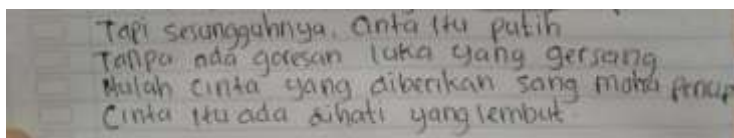 Tapi sesungguhnya. Cinta itu putih
Tanpa ada goresan luka yang gersang
Mulah cinta yang diberikan sang maha Pencip
Cinta itu ada dihati yang lembut.